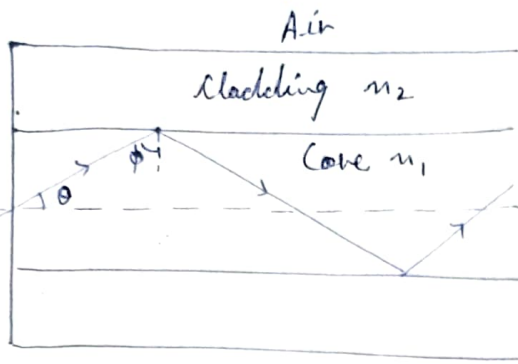 Air
Cladding n2
ϕ
Core n1
θ